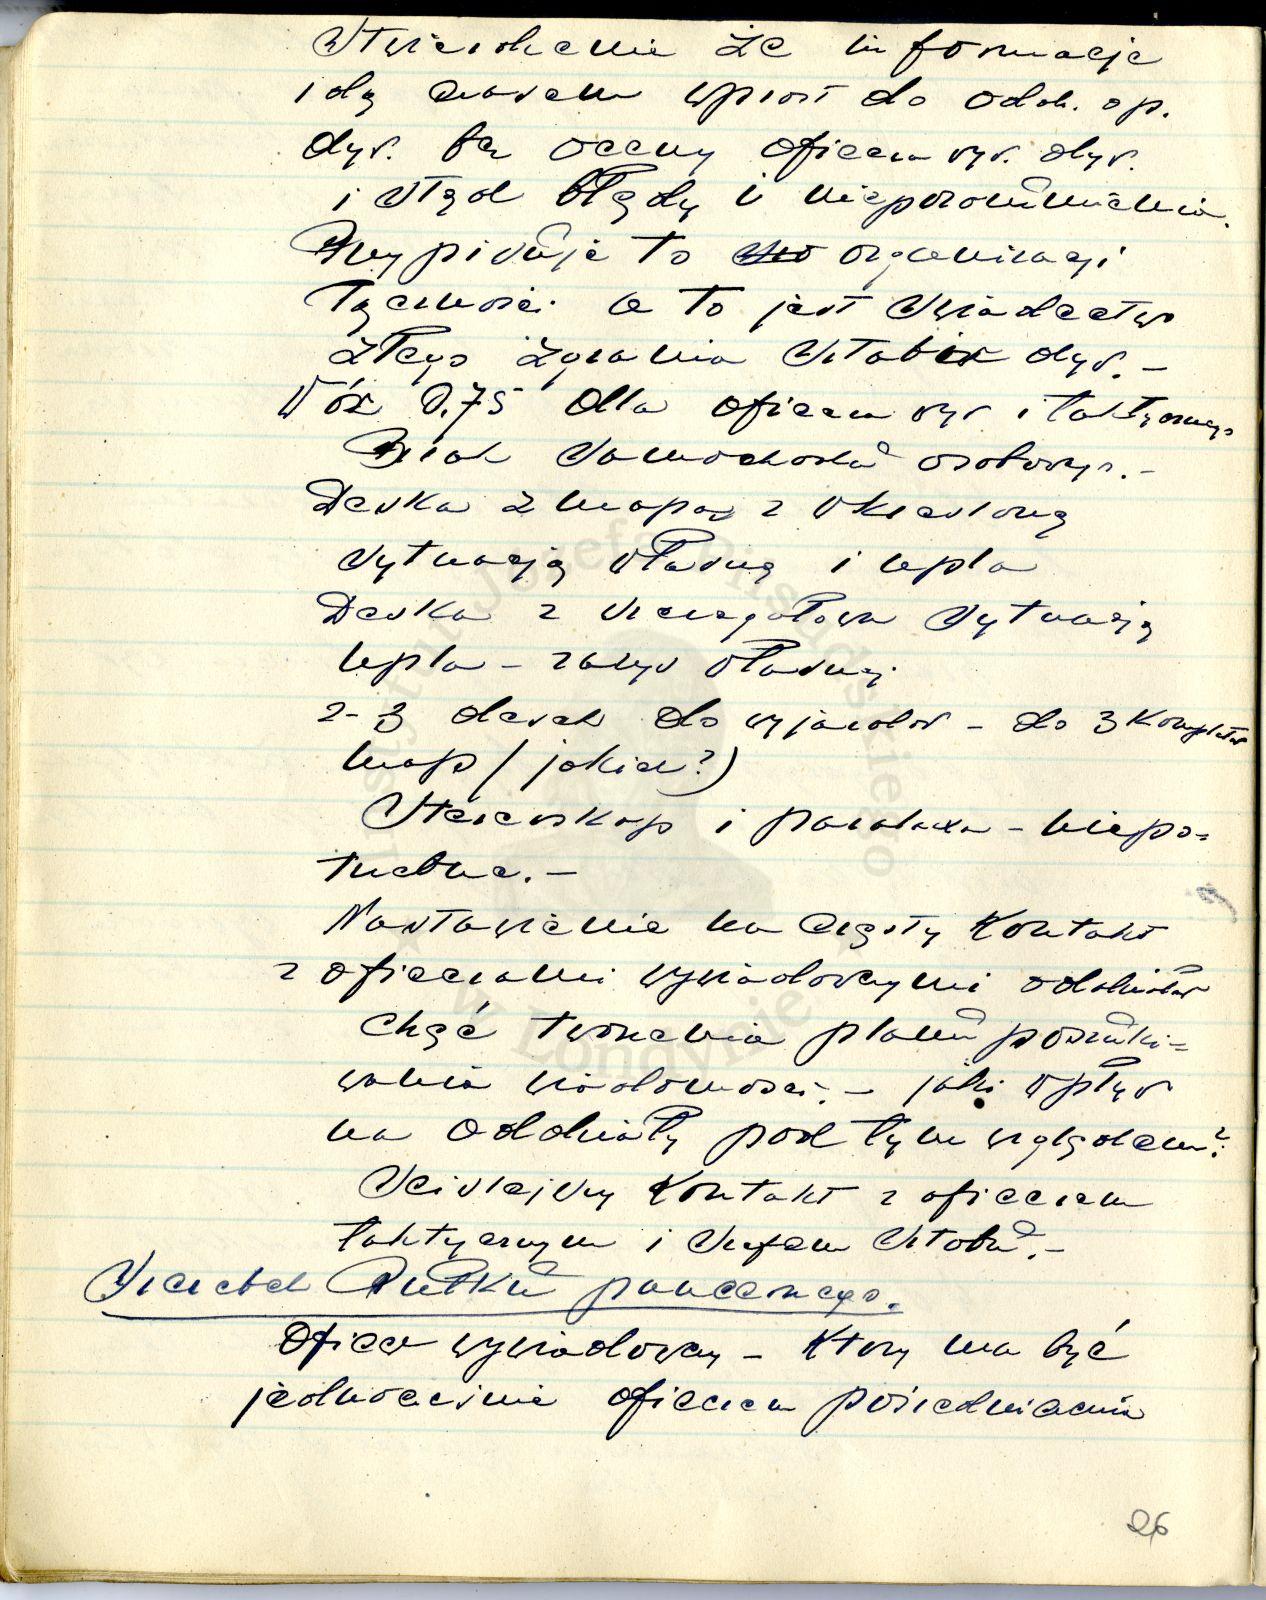 Stwierdzenie że informacje
idą czasem wprost do oddz. op.
dyw. bez oceny oficera wyw. dyw.
i stąd błędy i nieporozumienia.
Przypisuje to organizacji
łączności a to jest świadectwo
złego zgrania sztabów dyw. –
Wóz 0.75 dla oficera wyw i taktycznego
Brak samochodu osobowego. –
Deska z mapą z określoną
sytuacją własną i npla
Deska z szczegółową sytuacją
npla – zarys własnej
2-3 desek do wyjazdów – do 3 kompletów
map (jakich?)
Stereoskop i paralaxa – niepo=
trzebne. –
Nastawienie na częsty kontakt
z oficerami wywiadowczymi oddziałów
chęć tworzenia planu poszuki=
wania wiadomości. – jaki wpływ
na oddziały pod tym względem?
Ściślejszy kontakt z oficerem
taktycznym i szefem sztabu. –
Szczebel Pułku pancernego.
Oficer wywiadowczy – który ma być
jednocześnie oficerem pośredniczenia
26
Instytut Józefa Piłsudskiego
w Londynie